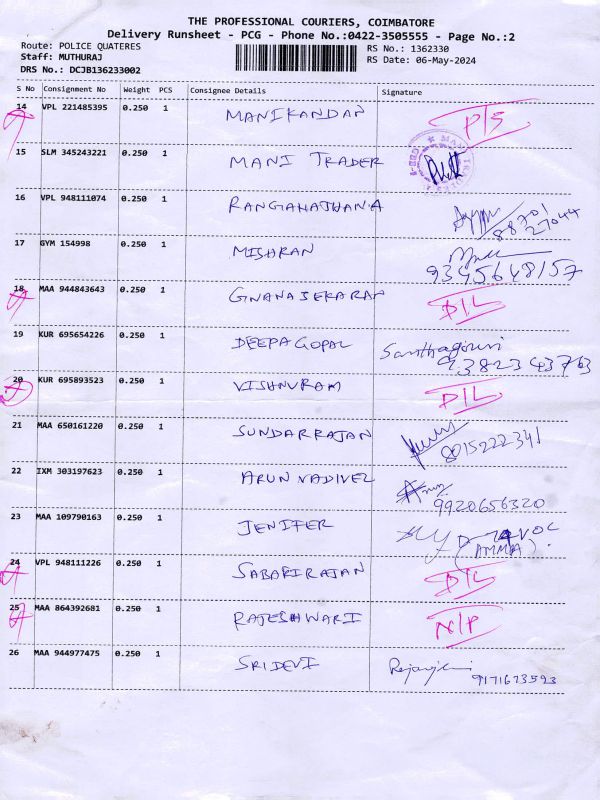 THE PROFESSIONAL COURIERS, COIMBATORE
Delivery Runsheet - PCG - Phone No.:0422-3505555 - Page No.:2
Route: POLICE QUATERES RS No.: 1362330
Staff: MUTHURAJ RS Date: 06-May-2024
DRS No.: DCJB136233002
S No Consignment No Weight PCS Consignee Details Signature
14 VPL 221485395 0.250 1 MANIKANDAN P/S
15 SLM 345243221 0.250 1 MANI TRADER
16 VPL 948111074 0.250 1 RANGANATHANA 88701
27044
17 GYM 154998 0.250 1 MISHRAN
9345648157
18 MAA 944843643 0.250 1 GNANASEKARAN D/L
19 KUR 695654226 0.250 1 DEEPA GOPAL Santhagouri
9382343763
20 KUR 695893523 0.250 1 VISHNURAM D/L
21 MAA 650161220 0.250 1 SUNDARRAJAN 8015222341
22 IXM 303197623 0.250 1 ARUN VADIVEL Arun
9920656320
23 MAA 109790163 0.250 1 JENIFER
(AMMA).
24 VPL 948111226 0.250 1 SABARIRAJAN D/L
25 MAA 864392681 0.250 1 RAJESHWARI N/P
26 MAA 944977475 0.250 1 SRIDEVI
9171673593